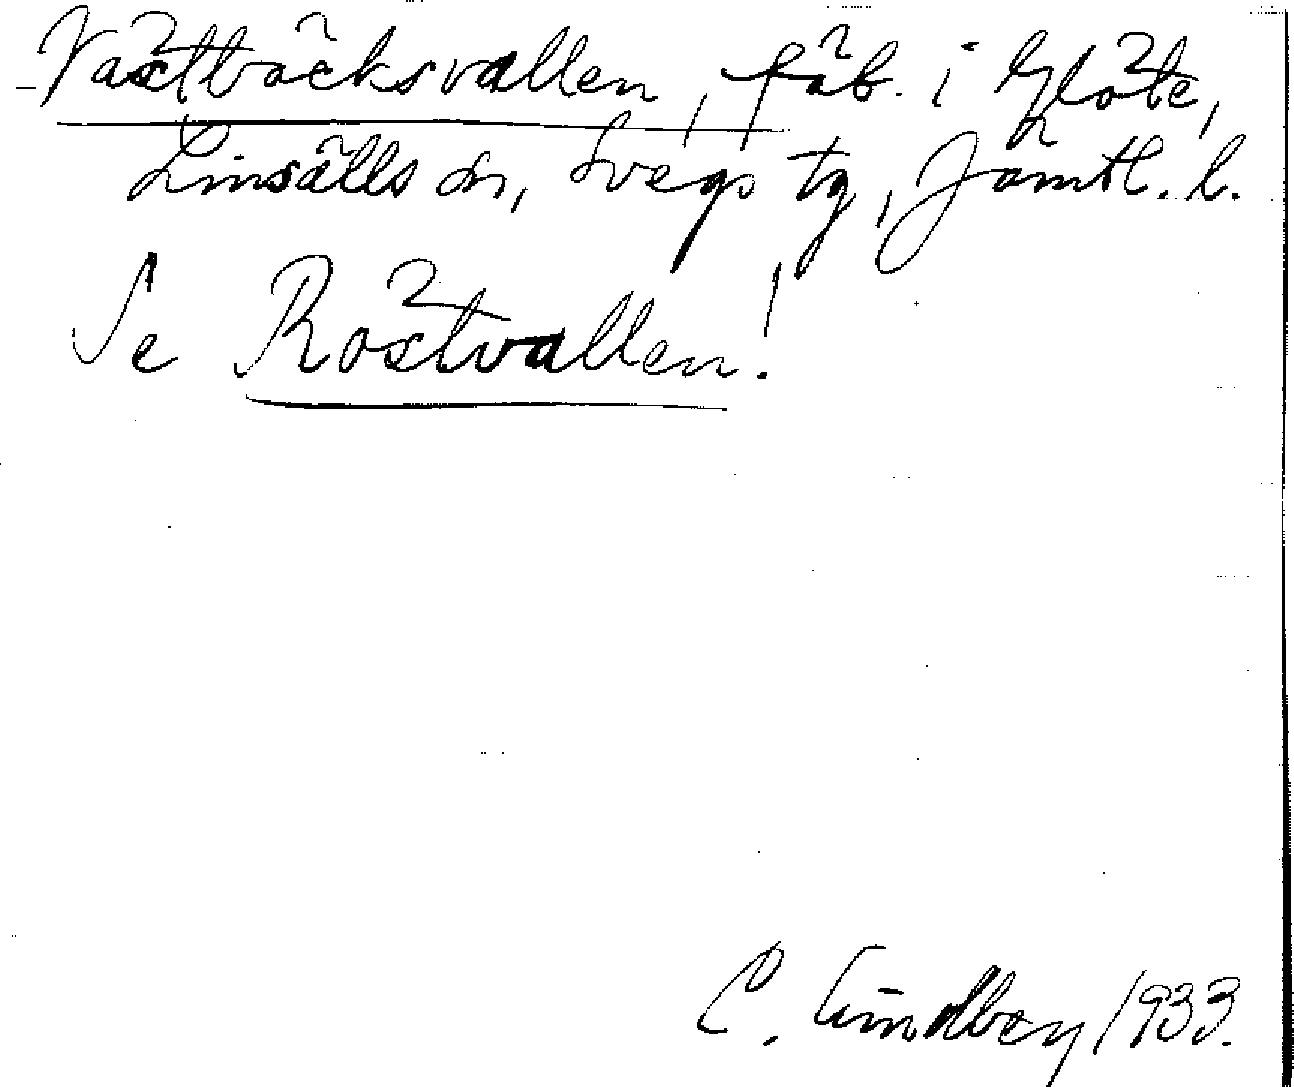 Västbäcksvallen, fäb. i Glöte,
Linsälls sn, Svegs tg, Jämtl. l.
Se Röstvallen!
C. Lindberg 1933.